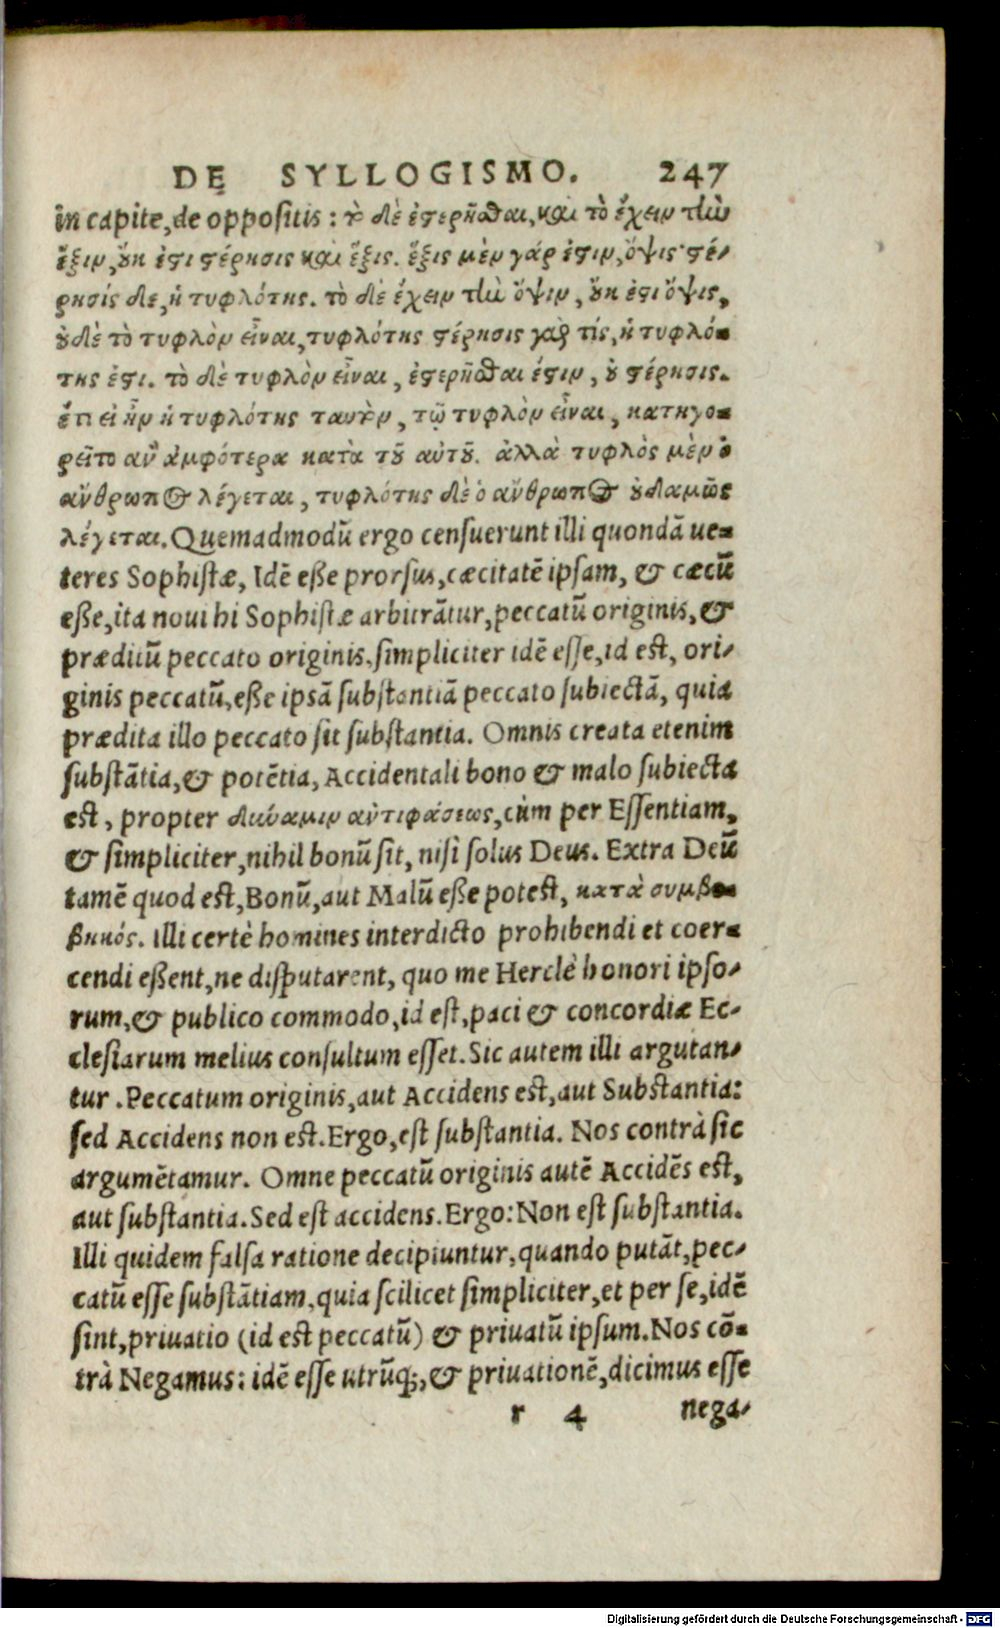 DE SYLLOGISMO. 247
in capite, de oppositis: τὸ δὲ ἐστερῆσθαι, καὶ τὸ ἔχειν τὴν
ἕξιν, οὐκ ἔστι στέρησις καὶ ἕξις. ἕξις μὲν γάρ ἐστιν, ὄψις· στέ-
ρησίς δε, ἡ τυφλότης. τὸ δὲ ἔχειν τὴν ὄψιν, οὐκ ἐστι ὄψις,
οὐδὲ τὸ τυφλὸν εἶναι, τυφλότης στέρησις γάρ τίς, ἡ τυφλό-
της ἐστι. τὸ δὲ τυφλὸν εἶναι, ἐστερῆσθαι ἐστιν, οὐ στέρησις.
ἔτι εἰ ἦν ἡ τυφλότης ταυτὸν, τῷ τυφλὸν εἶναι, κατηγο-
ρεῖτο ἂν ἀμφότερα κατὰ τοῦ αὐτοῦ. ἀλλὰ τυφλὸς μὲν ὁ
ἄνθρωπος λέγεται, τυφλότης δὲ ὁ ἄνθρωπος οὐδαμῶς
λέγεται. Quemadmodũ ergo censuerunt illi quondã ue-
teres Sophistæ, Idẽ eße prorsus, cæcitatẽ ipsam, & cæcũ
eße, ita noui hi Sophistæ arbitrãtur, peccatũ originis, &
præditũ peccato originis. simpliciter idẽ esse, id est, ori-
ginis peccatũ, eße ipsã substantiã peccato subiectã, quia
prædita illo peccato sit substantia. Omnis creata etenim
substãtia, & potẽtia, Accidentali bono & malo subiecta
est, propter δύναμιν ἀντιφάσεως, cùm per Essentiam,
& simpliciter, nihil bonũ sit, nisi solus Deus. Extra Deũ
tamẽ quod est, Bonũ, aut Malũ eße potest, κατὰ συμβε-
βηκός. Illi certè homines interdicto prohibendi et coer-
cendi eßent, ne disputarent, quo me Herclè honori ipso-
rum, & publico commodo, id est, paci & concordiæ Ec-
clesiarum melius consultum esset. Sic autem illi argutan-
tur. Peccatum originis, aut Accidens est, aut Substantia:
sed Accidens non est. Ergo, est substantia. Nos contrà sic
argumẽtamur. Omne peccatũ originis autẽ Accidẽs est,
aut substantia. Sed est accidens. Ergo: Non est substantia.
Illi quidem falsa ratione decipiuntur, quando putãt, pec-
catũ esse substãtiam, quia scilicet simpliciter, et per se, idẽ
sint, priuatio (id est peccatũ) & priuatũ ipsum. Nos cõ-
trà Negamus: idẽ esse utrũq;, & priuationẽ, dicimus esse
r 4 nega-
Digitalisierung gefördert durch die Deutsche Forschungsgemeinschaft - DFG